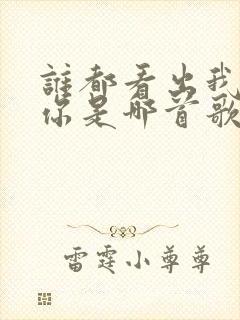 誰都看出我
你是哪首歌
雷霆小尊尊